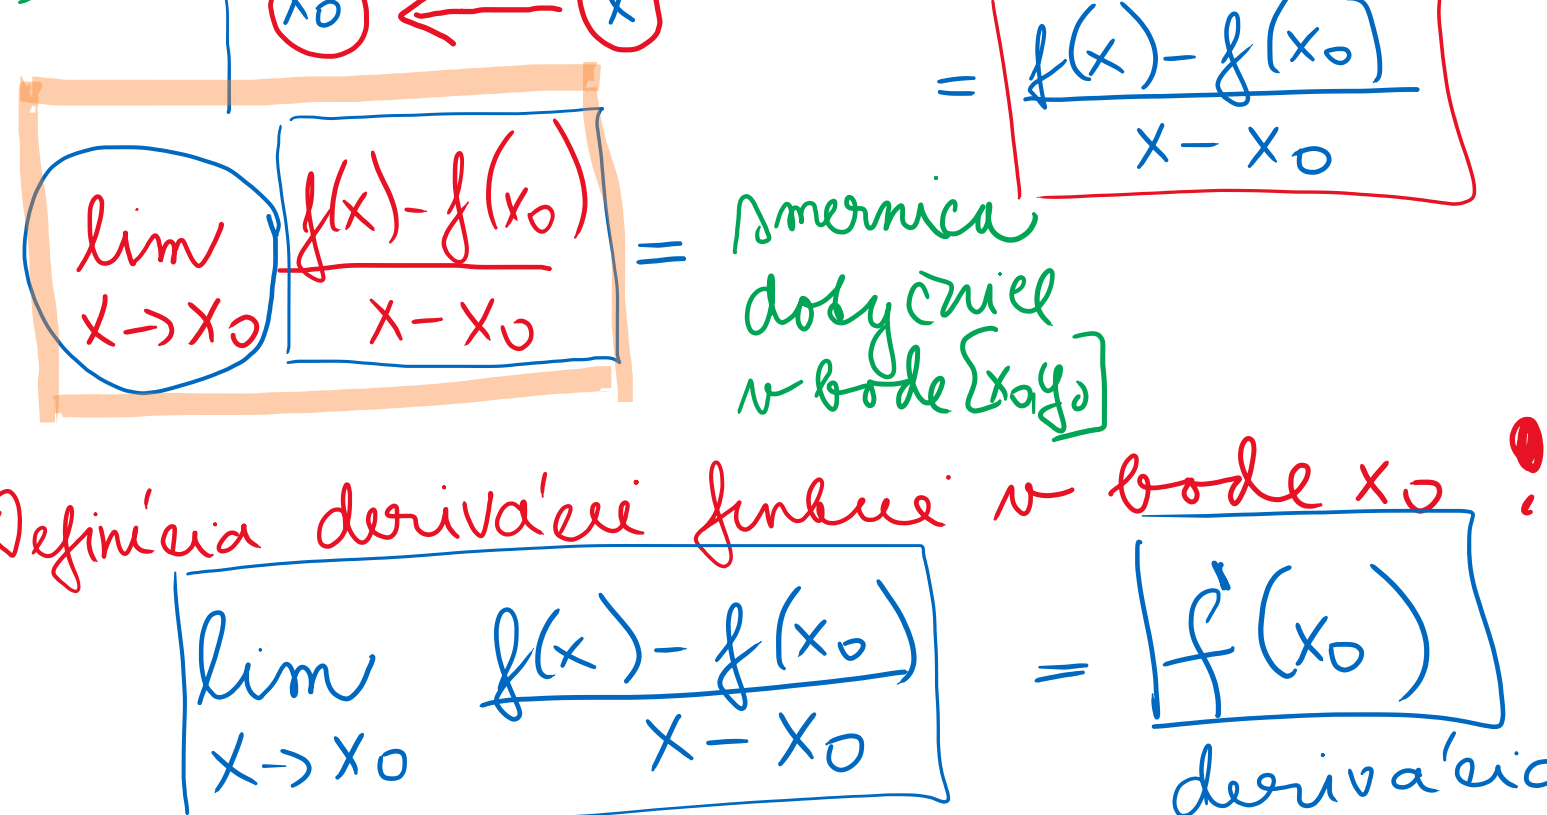 x₀ ← x
= (f(x) - f(x₀)) / (x - x₀)
lim x→x₀ (f(x) - f(x₀)) / (x - x₀) = smernica
dotyčnice
v bode [x₀, y₀]
Definícia derivácie funkcie v bode x₀ !
lim x→x₀ (f(x) - f(x₀)) / (x - x₀) = f'(x₀)
derivácia